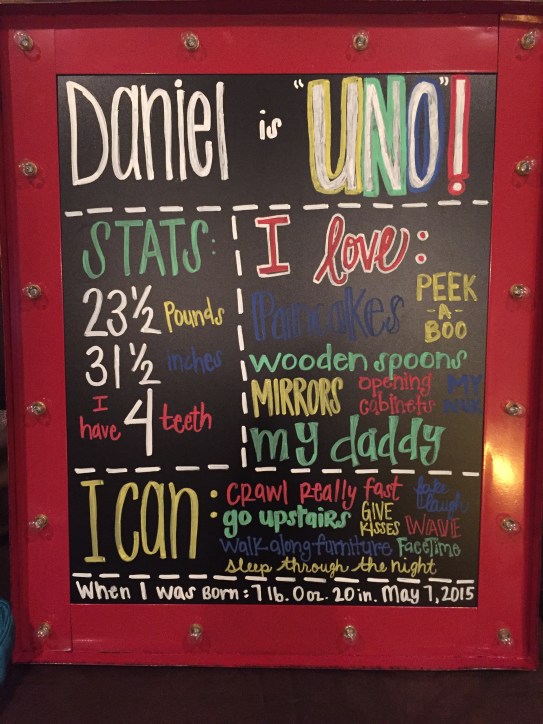 Daniel is "UNO"!
STATS:
23 1/2 Pounds
31 1/2 inches
I have 4 teeth
I love:
Pancakes
PEEK
-A-
BOO
wooden spoons
MIRRORS
opening
cabinets
MY
my daddy
I can:
crawl really fast
fake
laugh
go upstairs
GIVE
KISSES
WAVE
walk along furniture
FaceTime
sleep through the night
When I was Born: 7 lb. 0 oz. 20 in. May 7, 2015